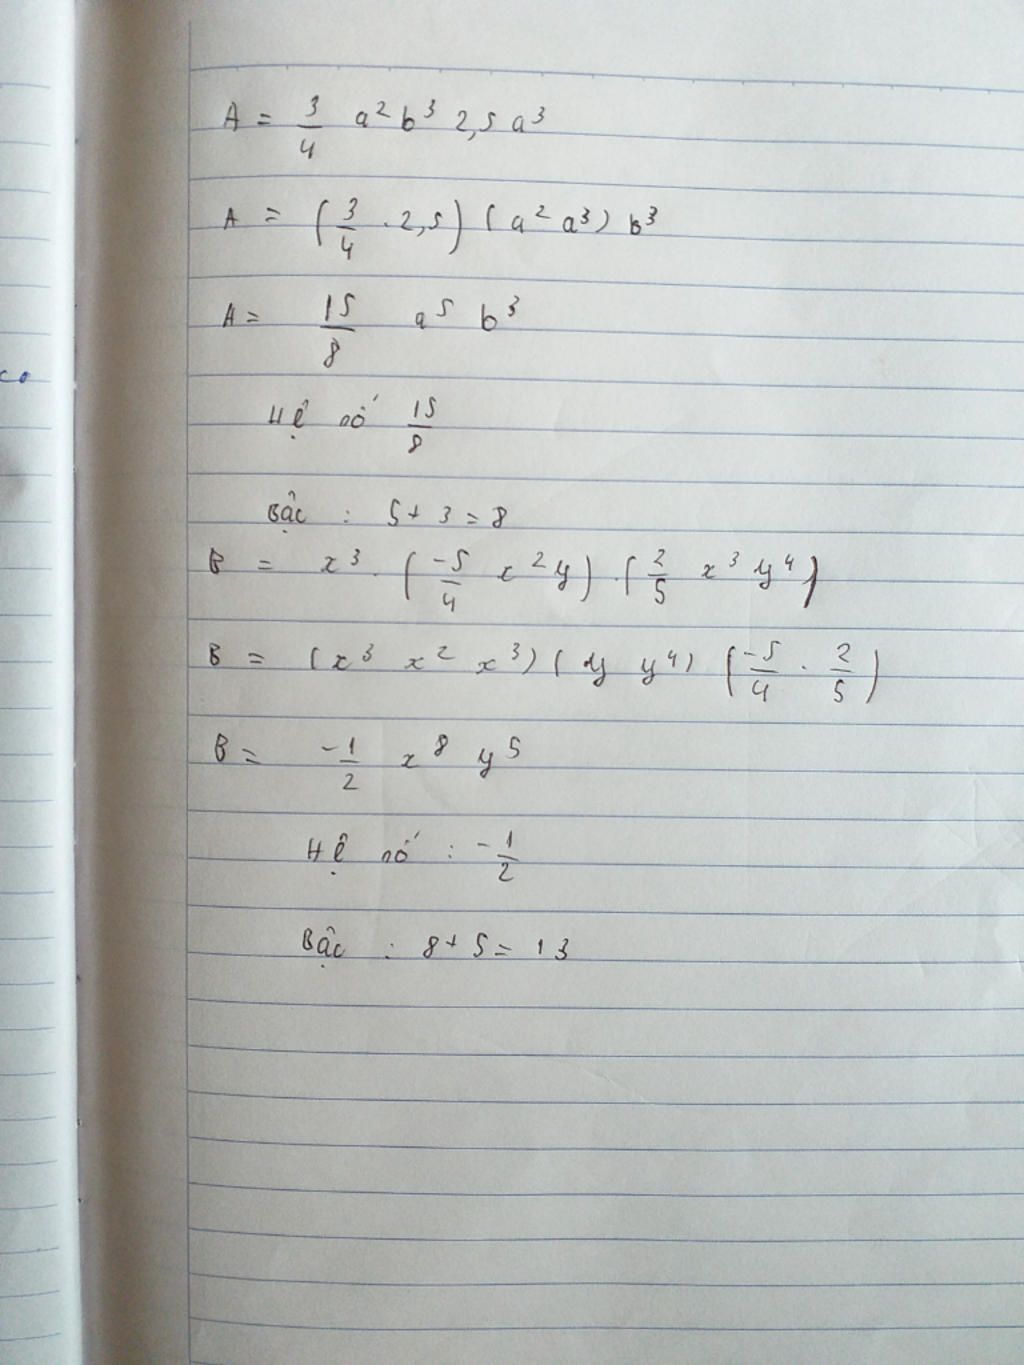 A = 3/4 a² b³ 2,5 a³
A = (3/4 . 2,5) (a² a³) b³
A = 15/8 a⁵ b³
Hệ số 15/8
Bậc : 5 + 3 = 8
B = x³ . (-5/4 x² y) . (2/5 x³ y⁴)
B = (x³ x² x³) (y y⁴) (-5/4 . 2/5)
B = -1/2 x⁸ y⁵
Hệ số : -1/2
Bậc : 8 + 5 = 13
co